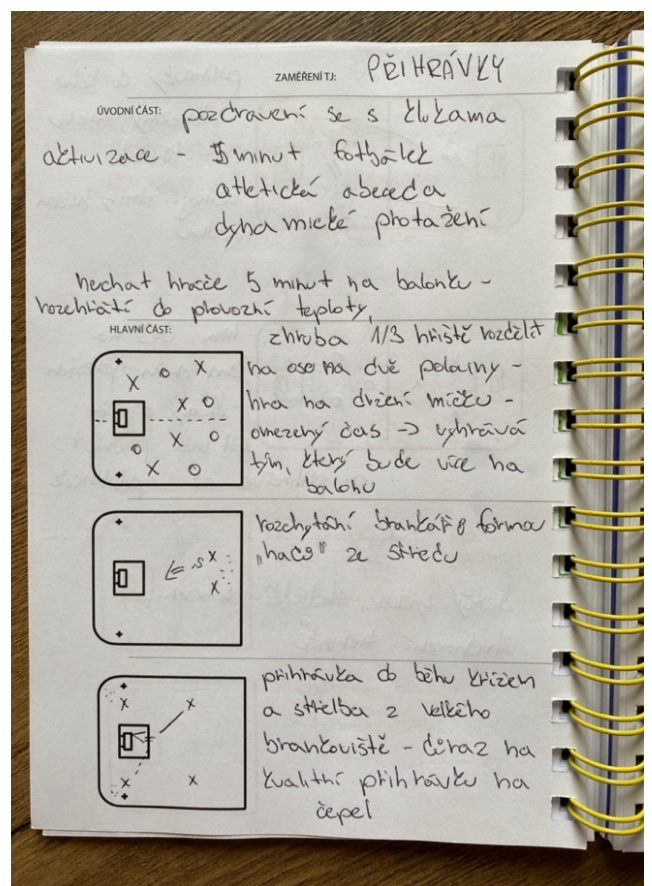 ZAMĚŘENÍ TJ: PŘIHRÁVKY
ÚVODNÍ ČÁST: pozdravení se s klukama
aktivizace - 5 minut fotbálek
atletická abeceda
dynamické protažení
nechat hráče 5 minut na balonku -
rozehřátí do provozní teploty,
HLAVNÍ ČÁST: zhruba 1/3 hřiště rozdělit
na oso na dvě poloviny -
hra na držení míčku -
omezený čas -> vyhrává
tým, který bude více na
balonu
rozchytání brankářů forma
"hace" ze středu
přihrávka do běhu křížem
a střelba z velkého
brankoviště - důraz na
kvalitní přihrávku na
čepel